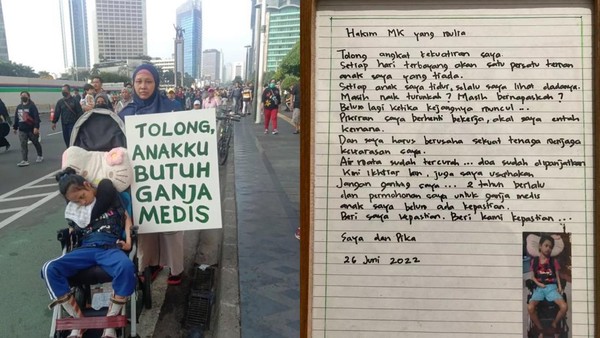 TOLONG,
ANAKKU
BUTUH
GANJA
MEDIS
Hakim MK yang mulia
Tolong angkat kekuatiran saya
Setiap hari terbayang akan satu persatu teman
anak saya yang tiada.
Setiap anak saya tidur, selalu saya lihat dadanya.
Masih naik turunkah? Masih bernapaskah?
Belum lagi ketika kejangnya muncul...
Pikiran saya berhenti bekerja, akal saya entah
kemana.
Dan saya harus berusaha sekuat tenaga menjaga
kewarasan saya.
Air mata sudah tercurah... doa sudah dipanjatkan
Kini ikhtiar lan, juga saya usahakan
Jangan gantung saya... 2 tahun berlalu
dan permohonan saya untuk ganja medis
anak saya belum ada kepastian.
Beri saya kepastian. Beri kami kepastian...
Saya dan Pika
26 Juni 2022